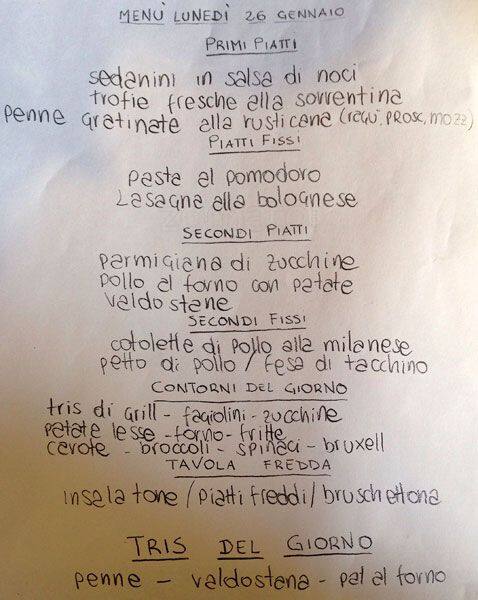 MENÙ LUNEDÌ 26 GENNAIO
PRIMI PIATTI
sedanini in salsa di noci
trofie fresche alla sorrentina
penne gratinate alla rusticana (ragù, PROSC, MOZZ)
PIATTI FISSI
pasta al pomodoro
Lasagna alla bolognese
SECONDI PIATTI
parmigiana di zucchine
pollo al forno con patate
valdostane
SECONDI FISSI
cotolette di pollo alla milanese
petto di pollo / fesa di tacchino
CONTORNI DEL GIORNO
tris di grill - fagiolini - zucchine
patate lesse - forno - fritte
carote - broccoli - spinaci - bruxell
TAVOLA FREDDA
insalatone / piatti freddi / bruschettona
TRIS DEL GIORNO
penne - valdostana - pat al forno